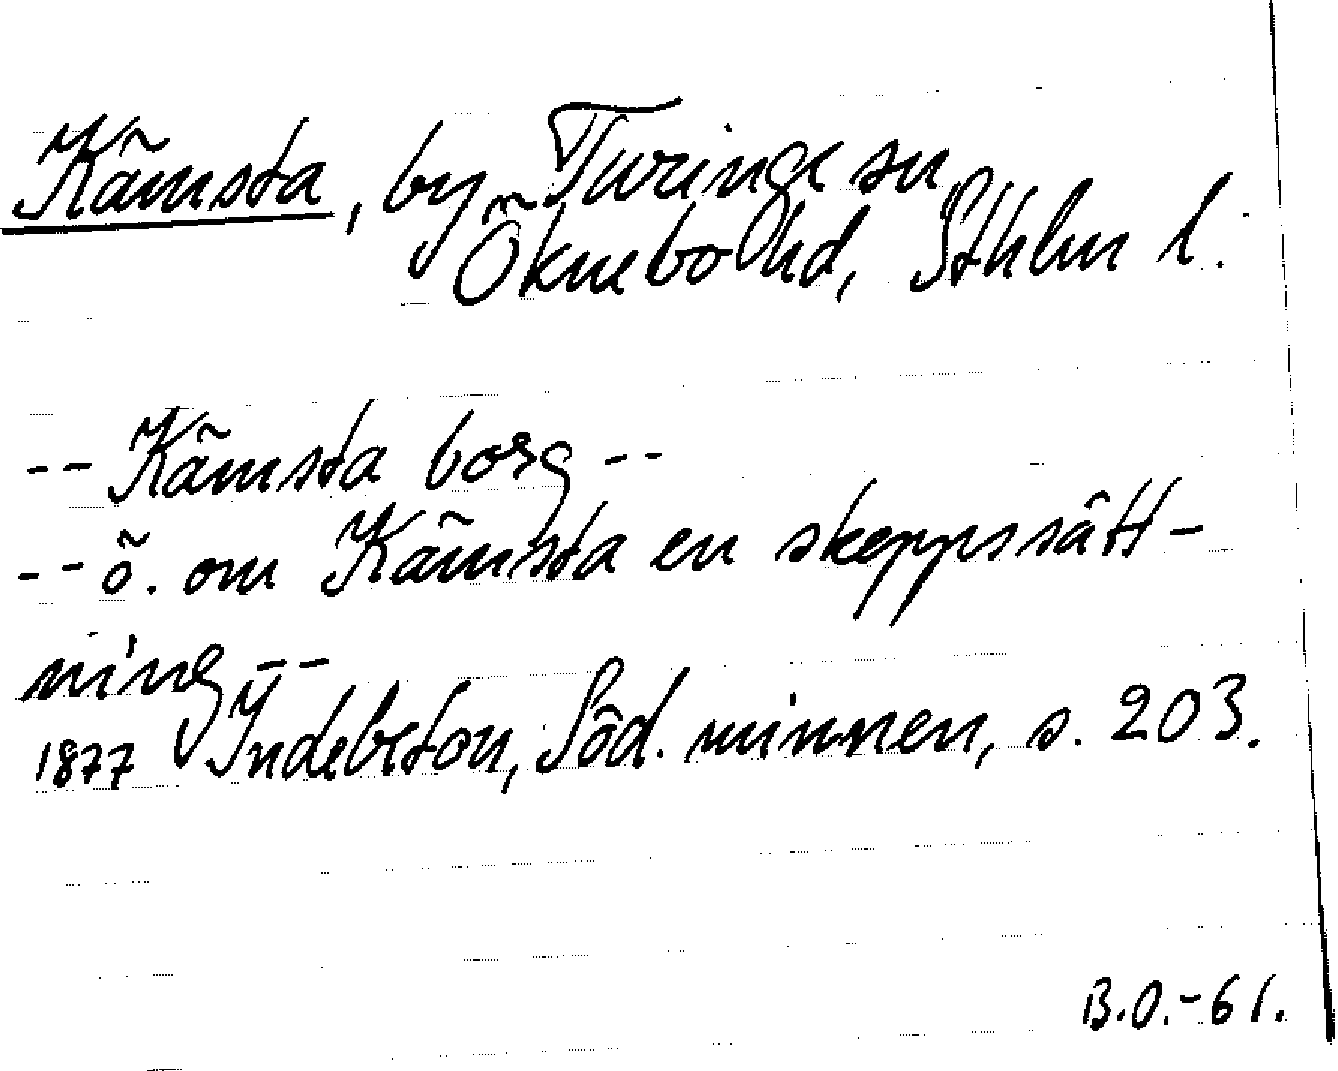 Kämsta, by Turinge sn
Öknebo hd, Sthlm l.
-- Kämsta borg --
-- ö. om Kämsta en skeppssätt-
ning --
1877 Indebetou, Söd. minnen, s. 203.
B.O.-61.